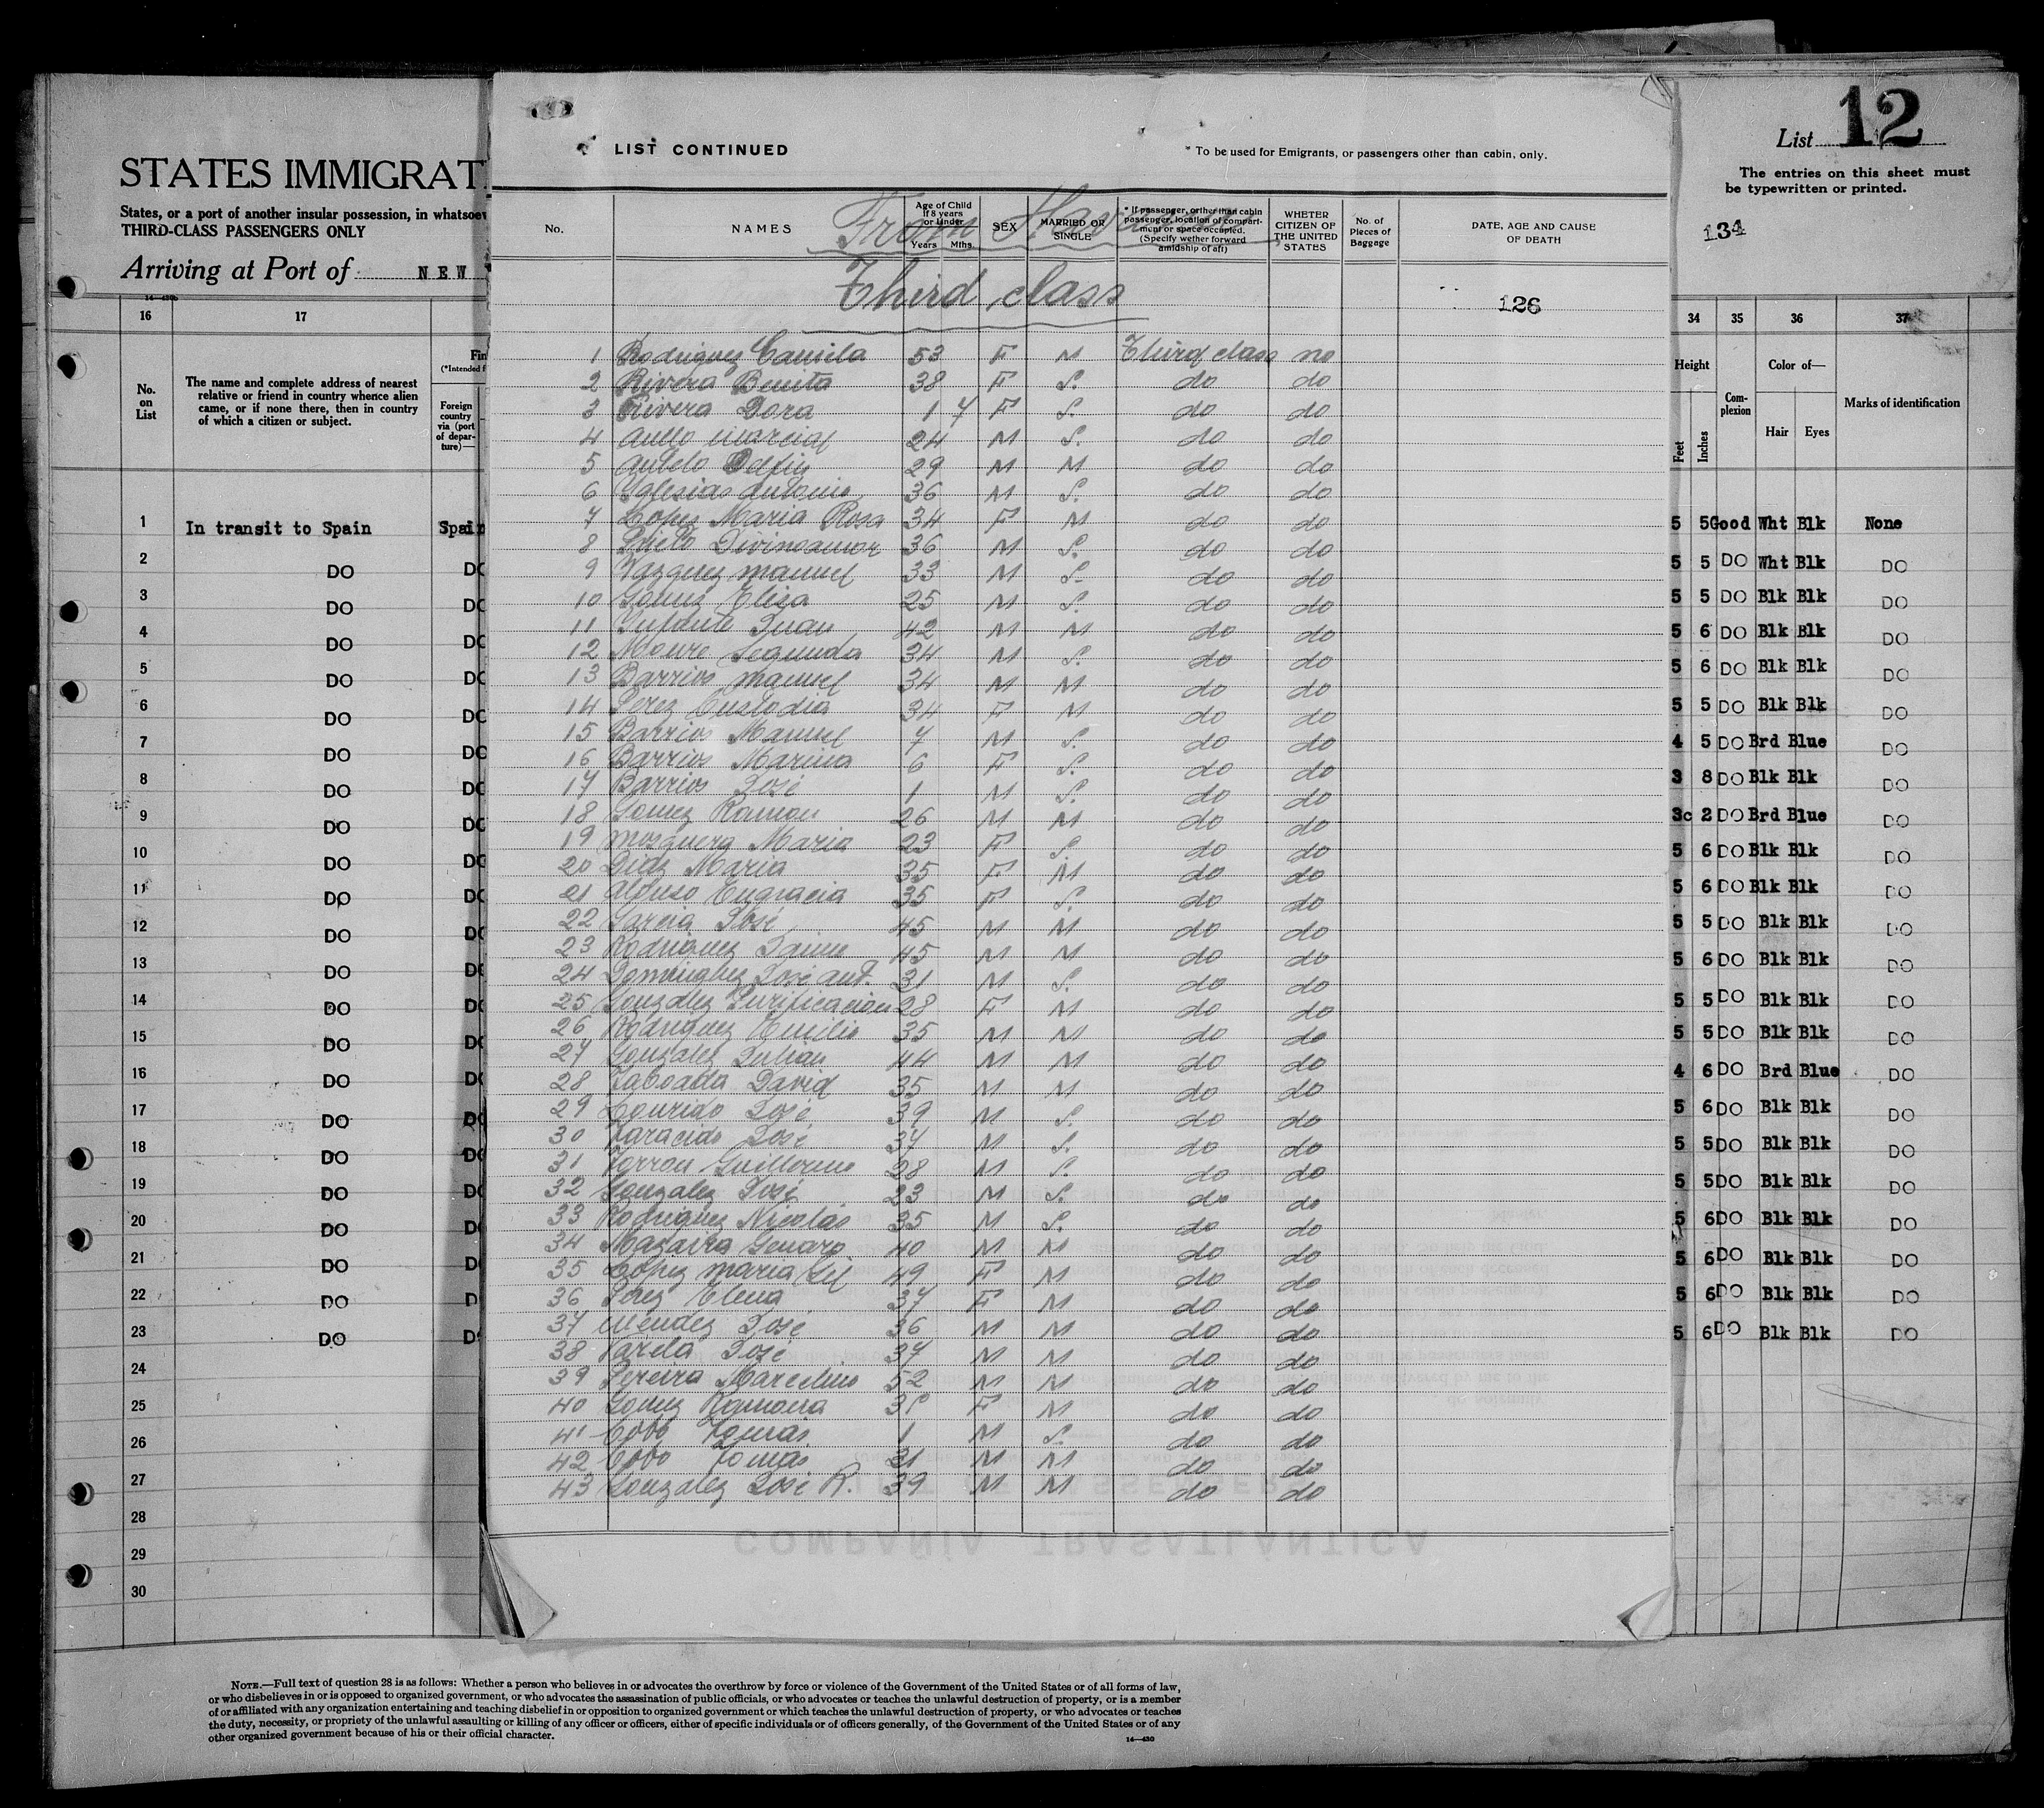 STATES IMMIGRAT
States, or a port of another insular possession, in whatsoev
THIRD-CLASS PASSENGERS ONLY
Arriving at Port of NEW
14—430b
16 17
No. on List
The name and complete address of nearest relative or friend in country whence alien came, or if none there, then in country of which a citizen or subject.
Fin
(*Intended f
Foreign country via (port of departure)—
1 In transit to Spain Spain
2 DO DO
3 DO DO
4 DO DO
5 DO DO
6 DO DO
7 DO DO
8 DO DO
9 DO DO
10 DO DO
11 DO DO
12 DO DO
13 DO DO
14 DO DO
15 DO DO
16 DO DO
17 DO DO
18 DO DO
19 DO DO
20 DO DO
21 DO DO
22 DO D
23 DO D
24
25
26
27
28
29
30
LIST CONTINUED
* To be used for Emigrants, or passengers other than cabin, only.
From Havana
No. NAMES Age of Child If 8 years or Under Years Mths. SEX MARRIED OR SINGLE * If passenger, orther than cabin passenger, location of compartment or space occupied. (Specify wether forward amidship of aft) WHETER CITIZEN OF THE UNITED STATES No. of Pieces of Baggage DATE, AGE AND CAUSE OF DEATH
Third class
126
1 Rodriguez Camila 53 F M Third class no
2 Rivera Benita 38 F S. do do
3 Rivera Dora 1 7 F S. do do
4 Marcial 24 M S. do do
5 29 M M do do
6 Yglesias Antonio 36 M S. do do
7 Lopez Maria Rosa 34 F M do do
8 Divinoamor 36 M S. do do
9 Vazquez Manuel 33 M S. do do
10 Gomez Elisa 25 M S. do do
11 Infante Juan 42 M M do do
12 Moure Segunda 34 M S. do do
13 Barrios Manuel 34 M M do do
14 Perez Custodia 34 F M do do
15 Barrios Manuel 7 M S. do do
16 Barrios Marina 6 F S. do do
17 Barrios José 1 M S. do do
18 Gomez Ramon 26 M M do do
19 Mosquera Maria 23 F S. do do
20 Diaz Maria 35 F M do do
21 Alfonso Engracia 35 F S. do do
22 Garcia José 45 M M do do
23 Rodriguez Jaime 45 M M do do
24 Dominguez José Ant. 31 M S. do do
25 Gonzalez Purificacion 28 F M do do
26 Rodriguez Emilio 35 M M do do
27 Gonzalez Julian 44 M M do do
28 Taboada David 35 M M do do
29 Lourido José 39 M S. do do
30 Taracido José 37 M S. do do
31 Guillermo 28 M S. do do
32 Gonzalez José 23 M S. do do
33 Rodriguez Nicolás 35 M S. do do
34 Mazaira Genaro 40 M M do do
35 Lopez Maria 49 F M do do
36 Perez Elena 37 F M do do
37 Mendez José 36 M M do do
38 Varela José 37 M M do do
39 Pereira Marcelino 52 M M do do
40 Gomez Ramona 31 F M do do
41 Cobo Tomás 1 M S. do do
42 Cobo Tomás 31 M M do do
43 Gonzalez José R. 39 M M do do
COMPAÑÍA TRASATLÁNTICA
List 12
The entries on this sheet must be typewritten or printed.
134
34 35 36 37
Height Feet Inches Complexion Color of— Hair Eyes Marks of identification
5 5 Good Wht Blk None
5 5 DO Wht Blk DO
5 5 DO Blk Blk DO
5 6 DO Blk Blk DO
5 6 DO Blk Blk DO
5 5 DO Blk Blk DO
4 5 DO Brd Blue DO
3 8 DO Blk Blk DO
3c 2 DO Brd Blue DO
5 6 DO Blk Blk DO
5 6 DO Blk Blk DO
5 5 DO Blk Blk DO
5 6 DO Blk Blk DO
5 5 DO Blk Blk DO
5 5 DO Blk Blk DO
4 6 DO Brd Blue DO
5 6 DO Blk Blk DO
5 5 DO Blk Blk DO
5 5 DO Blk Blk DO
5 6 DO Blk Blk DO
5 6 DO Blk Blk DO
5 6 DO Blk Blk DO
5 6 DO Blk Blk DO
NOTE.—Full text of question 28 is as follows: Whether a person who believes in or advocates the overthrow by force or violence of the Government of the United States or of all forms of law,
or who disbelieves in or is opposed to organized government, or who advocates the assassination of public officials, or who advocates or teaches the unlawful destruction of property, or is a member
of or affiliated with any organization entertaining and teaching disbelief in or opposition to organized government or which teaches the unlawful destruction of property, or who advocates or teaches
the duty, necessity, or propriety of the unlawful assaulting or killing of any officer or officers, either of specific individuals or of officers generally, of the Government of the United States or of any
other organized government because of his or their official character.
14—430